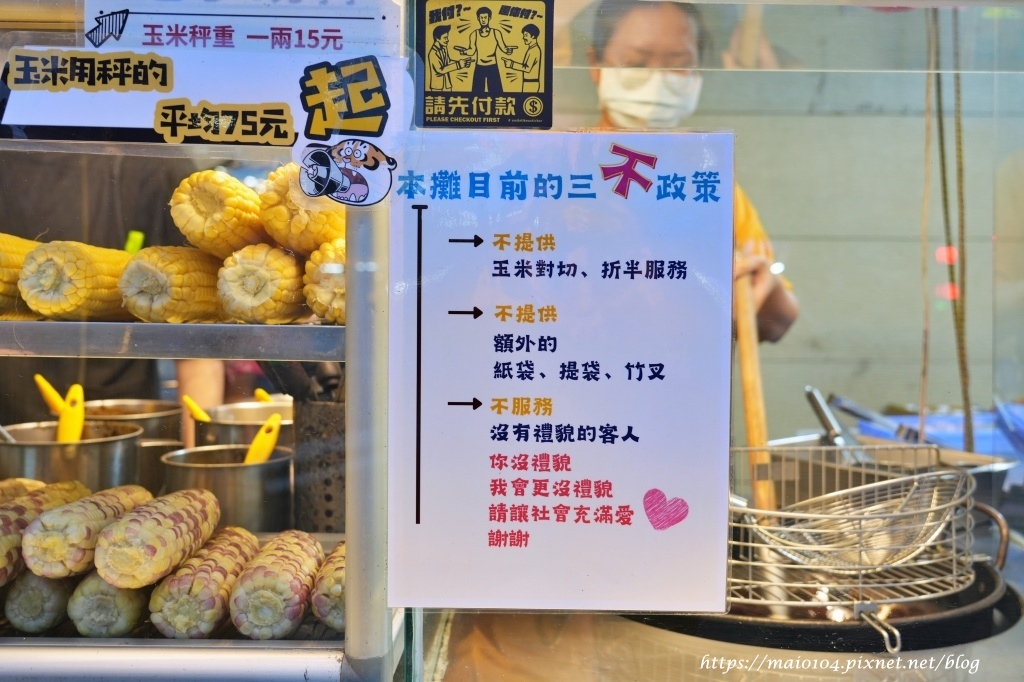 玉米秤重 一兩15元
玉米用秤的
平均75元
起
請先付款
PLEASE CHECKOUT FIRST
本攤目前的三不政策
不提供
玉米對切、折半服務
不提供
額外的
紙袋、提袋、竹叉
不服務
沒有禮貌的客人
你沒禮貌
我會更沒禮貌
請讓社會充滿愛
謝謝
https://maio104.pixnet.net/blog